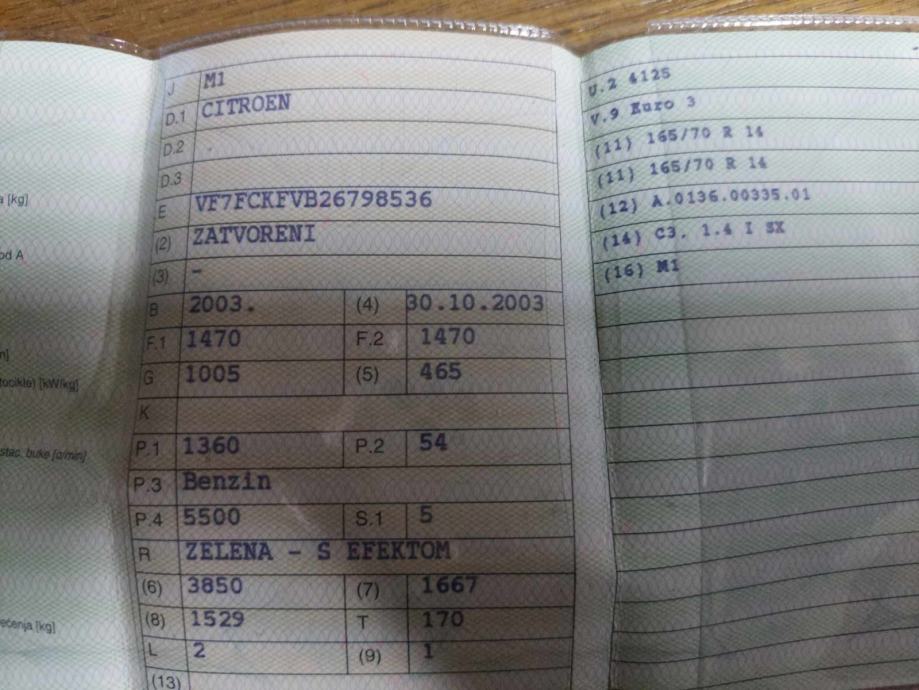 a [kg]
od A
n]
tocikle) [kW/kg]
stac. buke [o/min]
ećenja [kg]
J M1
D.1 CITROEN
D.2
D.3
E VF7FCKFVB26798536
(2) ZATVORENI
(3) -
B 2003. (4) 30.10.2003
F.1 1470 F.2 1470
G 1005 (5) 465
K
P.1 1360 P.2 54
P.3 Benzin
P.4 5500 S.1 5
R ZELENA - S EFEKTOM
(6) 3850 (7) 1667
(8) 1529 T 170
L 2 (9) 1
(13)
U.2 4125
V.9 Euro 3
(11) 165/70 R 14
(11) 165/70 R 14
(12) A.0136.00335.01
(14) C3. 1.4 I SX
(16) M1